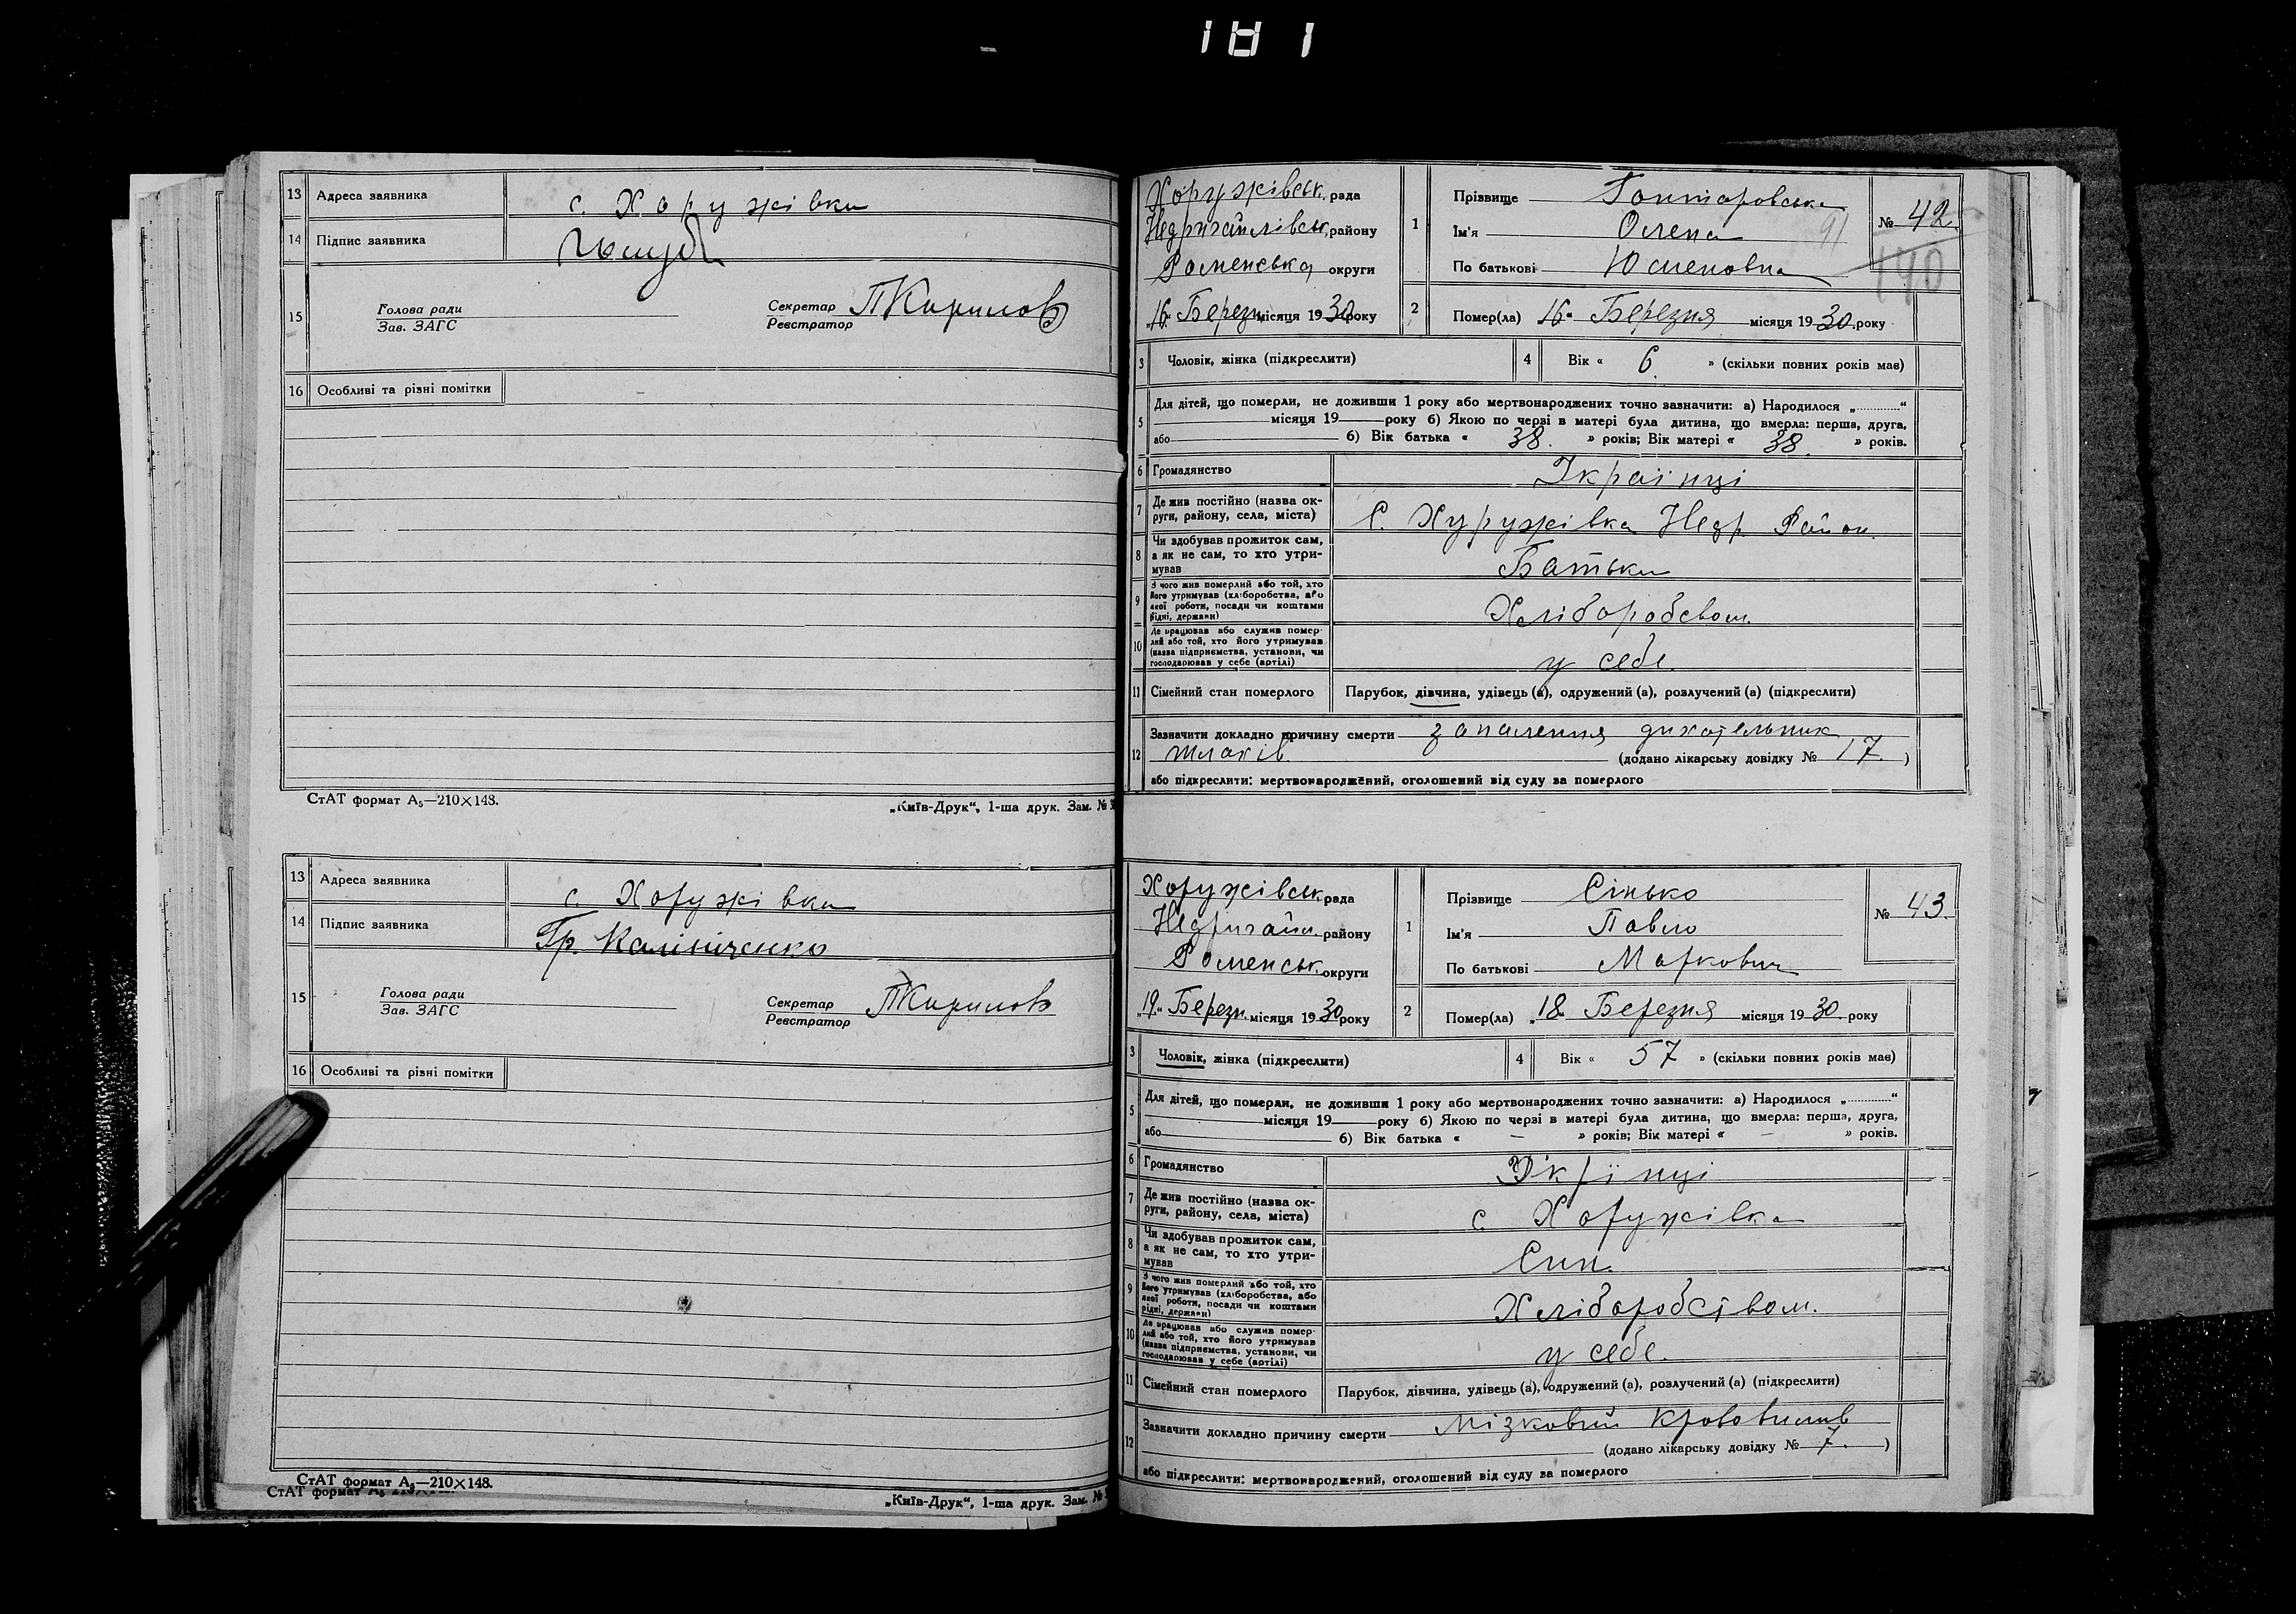 181
13 Адреса заявника с. Хоружівки
14 Підпис заявника
15 Голова ради
Зав. ЗАГС
Секретар ПКирилов
Реєстратор
16 Особливі та різні помітки
СтАТ формат А₅—210×148.
„Київ-Друк“, 1-ша друк. Зам. №
13 Адреса заявника с. Хоружівка
14 Підпис заявника Гр. Калініченко
15 Голова ради
Зав. ЗАГС
Секретар ПКирилов
Реєстратор
16 Особливі та різні помітки
СтАТ формат А₅—210×148.
СтАТ формат
„Київ-Друк“, 1-ша друк. Зам. №
Хоружівськ. рада
Недригайлівськ. району
Роменська округи
„16“ Березн місяця 1930 року
1 Прізвище Гонтаровська
Ім'я Олена
По батькові
№ 42.
91
190
2 Помер(ла) 16“ Березня місяця 1930 року
3 Чоловік, жінка (підкреслити)
4 Вік « 6. » (скільки повних років має)
5 Для дітей, що померли, не доживши 1 року або мертвонароджених точно зазначити: а) Народилося „............“
місяця 19 року б) Якою по черзі в матері була дитина, що вмерла: перша, друга,
або б) Вік батька « 38. » років; Вік матері « 38. » років.
6 Громадянство Українці
7 Де жив постійно (назва ок-
руги, району, села, міста) С. Хуружівка Недр. Район.
8 Чи здобував прожиток сам,
а як не сам, то хто утри-
мував Батьки
9 З чого жив померлий або той, хто
його утримував (хліборобства, або
якої роботи, посади чи коштами
рідні, держави) Хліборобсвом.
10 Де працював або служив помер-
лий або той, хто його утримував
(назва підприємства, установи, чи
господарював у себе (артілі) у себе.
11 Сімейний стан померлого Парубок, дівчина, удівець (а), одружений (а), розлучений (а) (підкреслити)
12 Зазначити докладно причину смерти запалення дихательник
шлаків. (додано лікарську довідку № 17. )
або підкреслити: мертвонароджений, оголошений від суду за померлого
Хоружівськ. рада
Недригайл. району
Роменськ. округи
„19.“ Березн. місяця 1930 року
1 Прізвище Сінько
Ім'я Павло
По батькові Маркович
№ 43.
2 Помер(ла) „18“ Березня місяця 1930. року
3 Чоловік, жінка (підкреслити)
4 Вік « 57 » (скільки повних років має)
5 Для дітей, що померли, не доживши 1 року або мертвонароджених точно зазначити: а) Народилося „............“
місяця 19 року б) Якою по черзі в матері була дитина, що вмерла: перша, друга,
або б) Вік батька « – » років; Вік матері « – » років.
6 Громадянство Укрїнці
7 Де жив постійно (назва ок-
руги, району, села, міста) с. Хоружівка
8 Чи здобував прожиток сам,
а як не сам, то хто утри-
мував Син.
9 З чого жив померлий або той, хто
його утримував (хліборобства, або
якої роботи, посади чи коштами
рідні, держави) Хліборобством.
10 Де працював або служив помер-
лий або той, хто його утримував
(назва підприємства, установи, чи
господарював у себе (артілі) у себе.
11 Сімейний стан померлого Парубок, дівчина, удівець (а), одружений (а), розлучений (а) (підкреслити)
12 Зазначити докладно причину смерти мізковий крововилив
(додано лікарську довідку № 7. )
або підкреслити: мертвонароджений, оголошений від суду за померлого